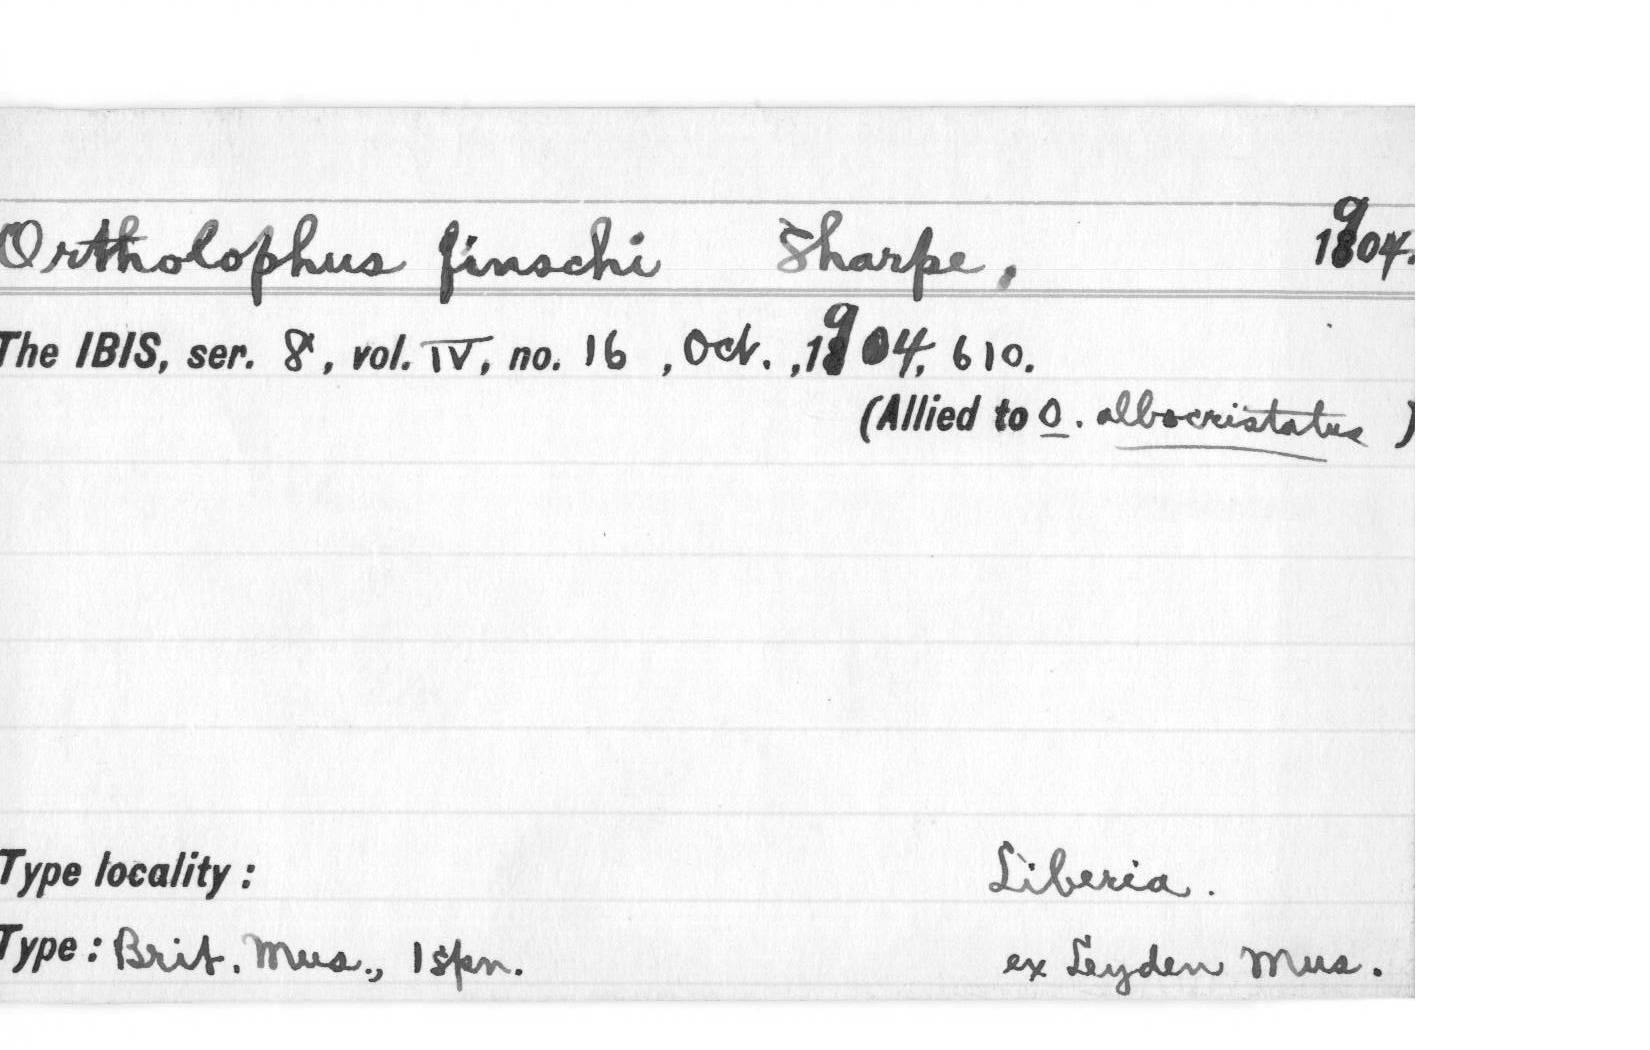 Ortholophus finschi Sharpe, 1904.
The IBIS, ser. 8, vol. IV, no. 16, Oct., 1904, 610.
(Allied to O. albocristatus )
Type locality : Liberia.
Type : Brit. Mus., 1 spn. ex Leyden Mus.